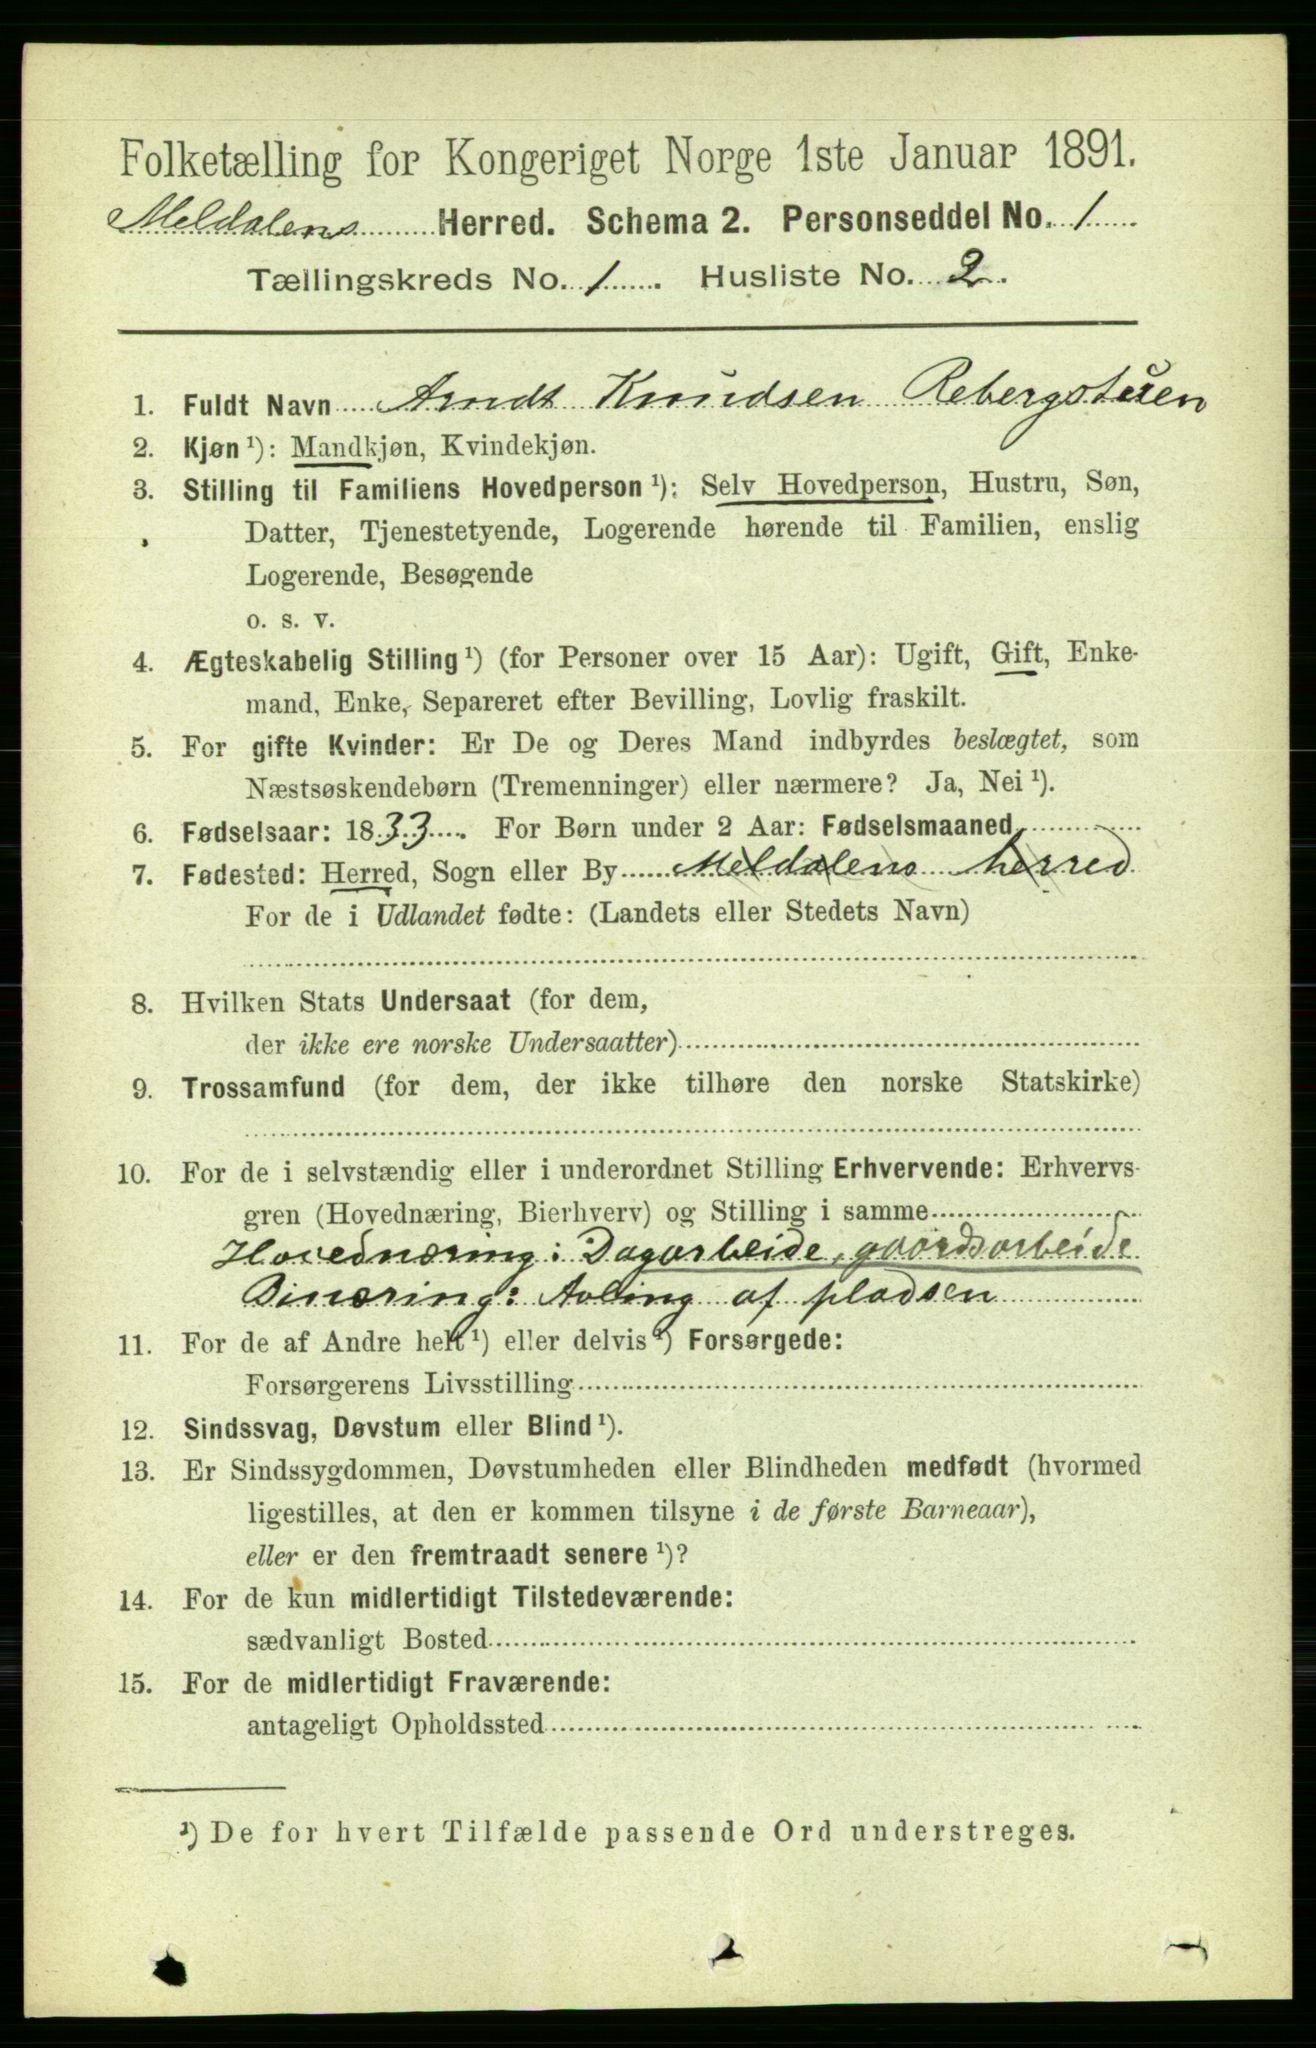 Folketælling for Kongeriget Norge 1ste Januar 1891.
Meldalens Herred. Schema 2. Personseddel No. 1
Tællingskreds No. 1. Husliste No. 2.
1. Fuldt Navn Arndt Knudsen Rebergstuen
2. Kjøn ¹): Mandkjøn, Kvindekjøn.
3. Stilling til Familiens Hovedperson ¹): Selv Hovedperson, Hustru, Søn,
Datter, Tjenestetyende, Logerende hørende til Familien, enslig
Logerende, Besøgende
o. s. v.
4. Ægteskabelig Stilling ¹) (for Personer over 15 Aar): Ugift, Gift, Enke-
mand, Enke, Separeret efter Bevilling, Lovlig fraskilt.
5. For gifte Kvinder: Er De og Deres Mand indbyrdes beslægtet, som
Næstsøskendebørn (Tremenninger) eller nærmere? Ja, Nei ¹).
6. Fødselsaar: 1833. For Børn under 2 Aar: Fødselsmaaned
7. Fødested: Herred, Sogn eller By Meldalens herred
For de i Udlandet fødte: (Landets eller Stedets Navn)
8. Hvilken Stats Undersaat (for dem,
der ikke ere norske Undersaatter)
9. Trossamfund (for dem, der ikke tilhøre den norske Statskirke)
10. For de i selvstændig eller i underordnet Stilling Erhvervende: Erhvervs-
gren (Hovednæring, Bierhverv) og Stilling i samme
Hovednæring: Dagarbeide, gaardsarbeide
Binæring: Avling af pladsen
11. For de af Andre helt ¹) eller delvis ¹) Forsørgede:
Forsørgerens Livsstilling
12. Sindssvag, Døvstum eller Blind ¹).
13. Er Sindssygdommen, Døvstumheden eller Blindheden medfødt (hvormed
ligestilles, at den er kommen tilsyne i de første Barneaar),
eller er den fremtraadt senere ¹)?
14. For de kun midlertidigt Tilstedeværende:
sædvanligt Bosted
15. For de midlertidigt Fraværende:
antageligt Opholdssted
¹) De for hvert Tilfælde passende Ord understreges.